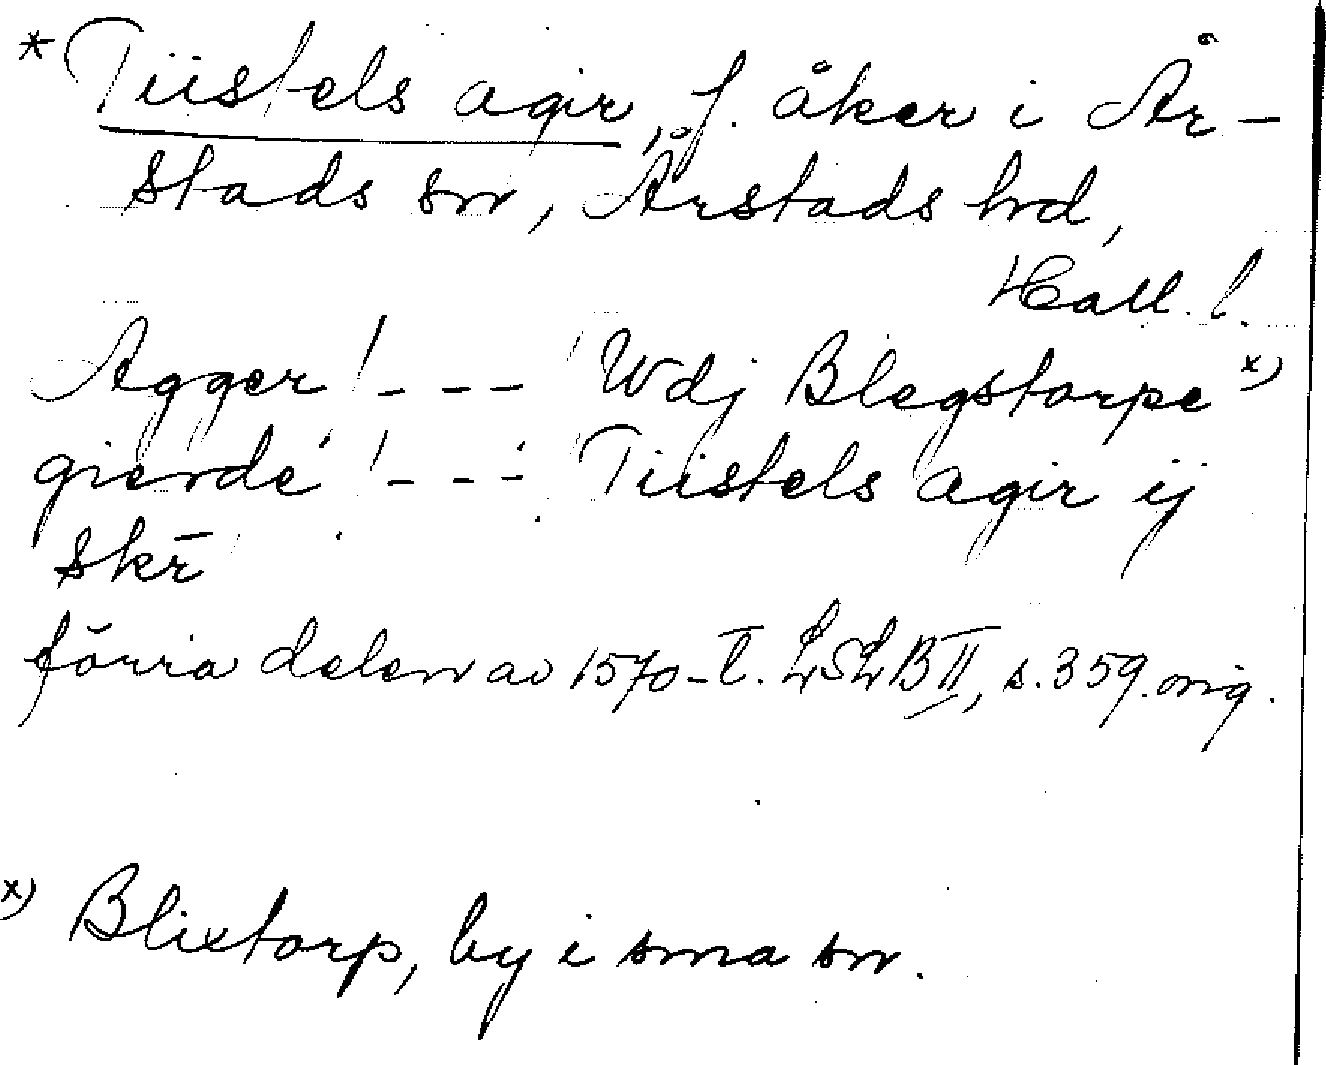 * Tiistels agir, f. åker i År-
stads sn, Årstads hd,
Hall. l.
Agger ! - - - Wdj Blegstorpe x)
gierde ! - - - Tiistels agir ij
skr̄
förra delen av 1570-t. LSLB II, s. 359. orig.
x) Blixtorp, by i sma sn.